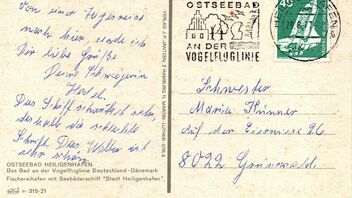 Von einer Segelreise
nach hier sende ich
Dir liebe Grüße
Deine Schwägerin
Herta.
Das Schiff schaukelt sehr,
deshalb die schlechte
Schrift. Das Wetter ist
sehr schön.
OSTSEEBAD HEILIGENHAFEN
Das Bad an der Vogelfluglinie Deutschland - Dänemark
Fischereihafen mit Seebäderschiff "Stadt Heiligenhafen"
n 315-21
VERLAG J. F. JANTZEN, 2 HAMBURG 11, MARTIN-LUTHER-STR. 8
OSTSEEBAD
AN DER
VOGELFLUGLINIE
Schwester
Maria
Auf der Eierwiese
8022 Grünwald